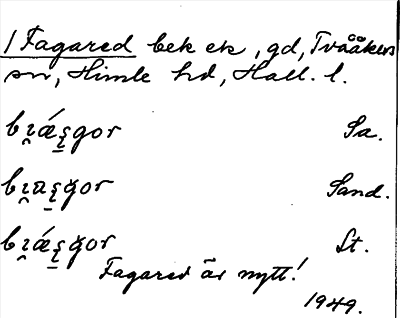 1 Fagared bek ek, gd, Tvååkers
sn, Himle hd, Hall. l.
bɪ̯ǽȿgor Sa.
bɪ̯aȿgor Sand.
bɪ̯ǽȿgor St.
Fagared är nytt!
1949.